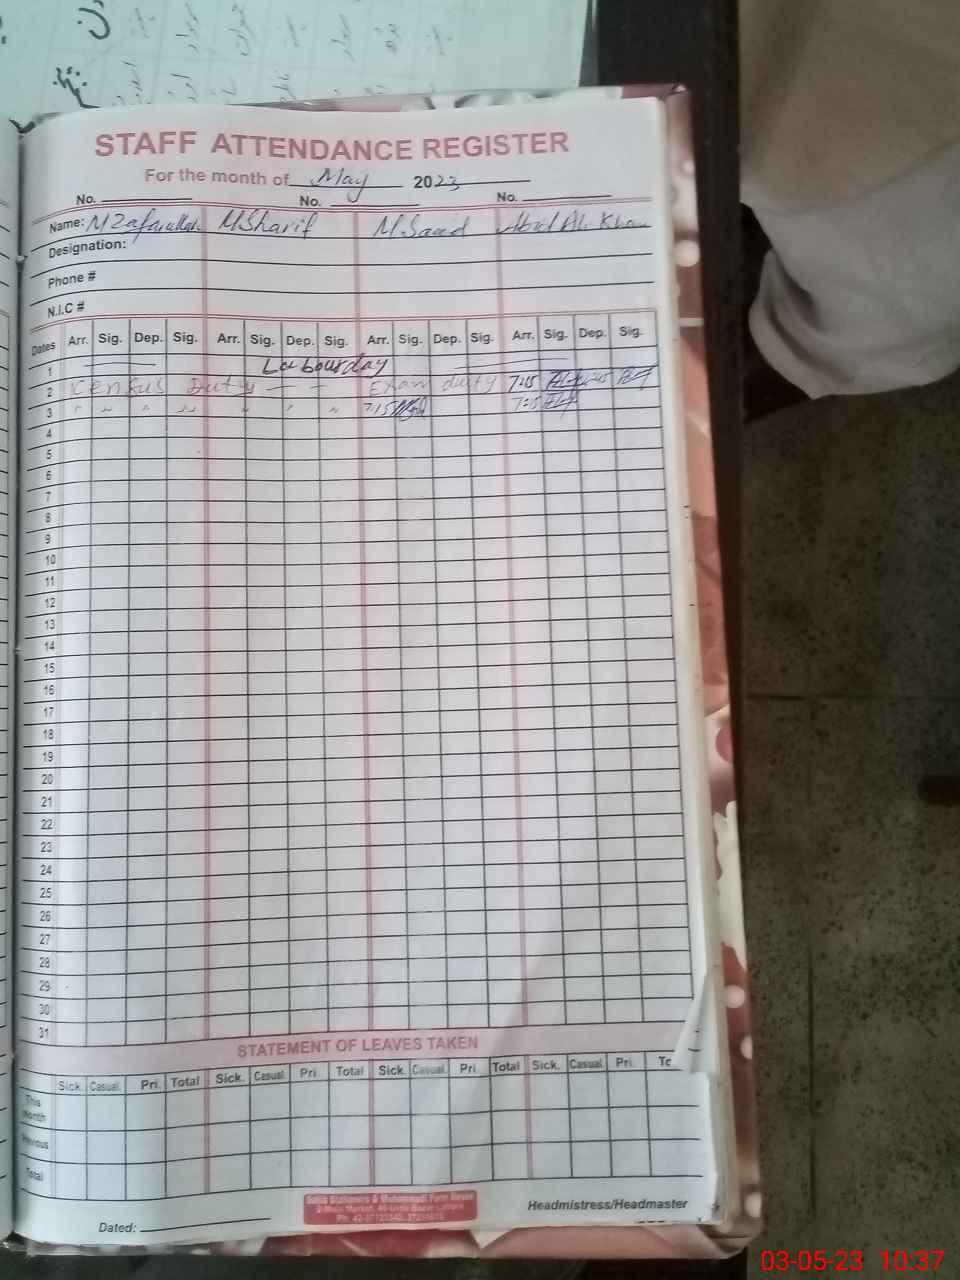 STAFF ATTENDANCE REGISTER
For the month of May 2023
No. No. No.
Name: M Zafarullah M Sharif M. Saeed Abid Ali Khan
Designation:
Phone #
N.I.C #
Dates Arr. Sig. Dep. Sig. Arr. Sig. Dep. Sig. Arr. Sig. Dep. Sig. Arr. Sig. Dep. Sig.
1 Labour day
2 Census Duty Exam duty 7:15
3 " " " " " " " 7:15 7:15
4
5
6
7
8
9
10
11
12
13
14
15
16
17
18
19
20
21
22
23
24
25
26
27
28
29
30
31
STATEMENT OF LEAVES TAKEN
Sick. Casual. Pri. Total Sick. Casual. Pri. Total Sick. Casual. Pri. Total Sick. Casual. Pri.
This Month
Previous
Total
Headmistress/Headmaster
Dated:
03-05-23 10:37